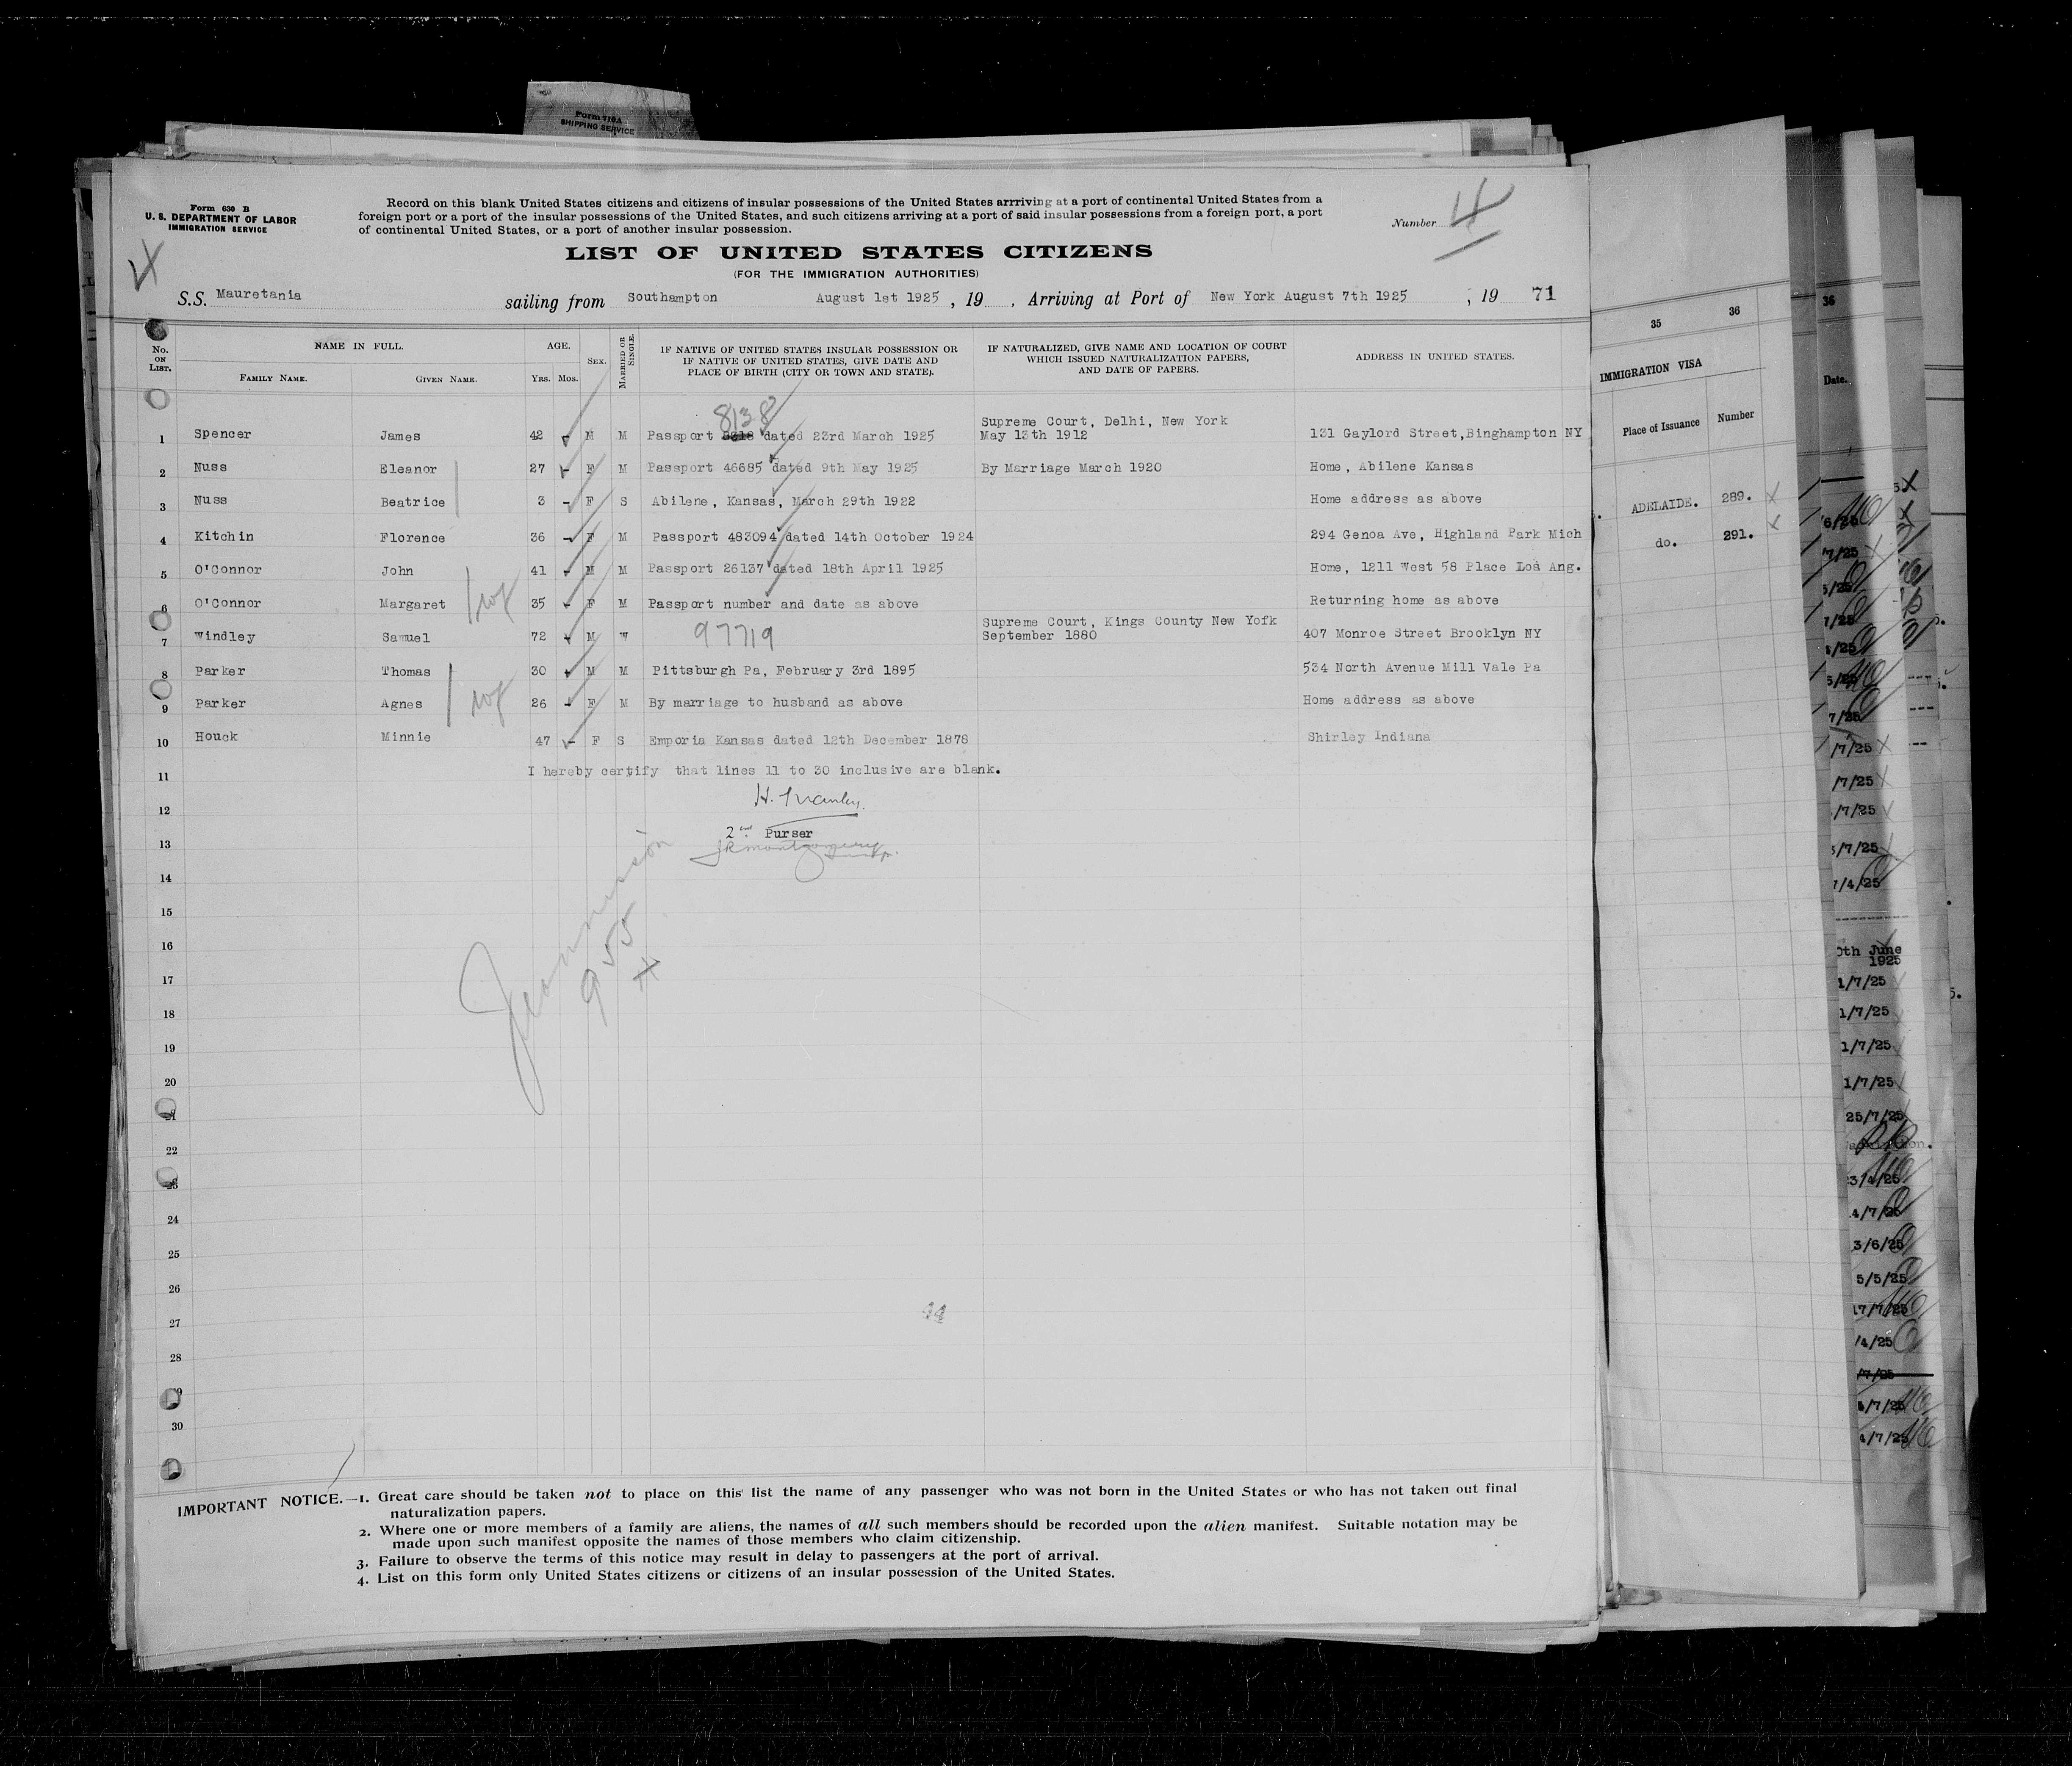 Form 710A
SHIPPING SERVICE
Form 630 B
U. S. DEPARTMENT OF LABOR
IMMIGRATION SERVICE
Record on this blank United States citizens and citizens of insular possessions of the United States arrriving at a port of continental United States from a
foreign port or a port of the insular possessions of the United States, and such citizens arriving at a port of said insular possessions from a foreign port, a port
of continental United States, or a port of another insular possession.
Number 4
4
LIST OF UNITED STATES CITIZENS
(FOR THE IMMIGRATION AUTHORITIES)
S.S. Mauretania sailing from Southampton August 1st 1925 , 19 , Arriving at Port of New York August 7th 1925 , 19 71
No. ON LIST. NAME IN FULL. AGE. SEX. MARRIED OR SINGLE. IF NATIVE OF UNITED STATES INSULAR POSSESSION OR IF NATIVE OF UNITED STATES, GIVE DATE AND PLACE OF BIRTH (CITY OR TOWN AND STATE). IF NATURALIZED, GIVE NAME AND LOCATION OF COURT WHICH ISSUED NATURALIZATION PAPERS, AND DATE OF PAPERS. ADDRESS IN UNITED STATES.
FAMILY NAME. GIVEN NAME. YRS. MOS.
8138
1 Spencer James 42 M M Passport dated 23rd March 1925 Supreme Court, Delhi, New York May 13th 1912 131 Gaylord Street,Binghampton NY
2 Nuss Eleanor 27 - F M Passport 46685 dated 9th May 1925 By Marriage March 1920 Home, Abilene Kansas
3 Nuss Beatrice 3 - F S Abilene, Kansas, March 29th 1922 Home address as above
4 Kitchin Florence 36 - F M Passport 483094 dated 14th October 1924 294 Genoa Ave, Highland Park Mich
5 O'Connor John 41 - M M Passport 26137 dated 18th April 1925 Home, 1211 West 58 Place Los Ang.
6 O'Connor Margaret wf 35 - F M Passport number and date as above Returning home as above
7 Windley Samuel 72 - M W 97719 Supreme Court, Kings County New York September 1880 407 Monroe Street Brooklyn NY
8 Parker Thomas 30 - M M Pittsburgh Pa, February 3rd 1895 534 North Avenue Mill Vale Pa
9 Parker Agnes wf 26 - F M By marriage to husband as above Home address as above
10 Houck Minnie 47 - F S Emporia Kansas dated 12th December 1878 Shirley Indiana
11 I hereby certify that lines 11 to 30 inclusive are blank.
12
2nd Purser
13 JR Montgomery
14
15
16
955
17
18
19
20
21
22
23
24
25
26
27 44
28
29
30
IMPORTANT NOTICE.—1. Great care should be taken not to place on this list the name of any passenger who was not born in the United States or who has not taken out final
naturalization papers.
2. Where one or more members of a family are aliens, the names of all such members should be recorded upon the alien manifest. Suitable notation may be
made upon such manifest opposite the names of those members who claim citizenship.
3. Failure to observe the terms of this notice may result in delay to passengers at the port of arrival.
4. List on this form only United States citizens or citizens of an insular possession of the United States.
35 36
IMMIGRATION VISA
Place of Issuance Number
ADELAIDE. 289.
do. 291.
36
Date.
/7/25
/7/25
/7/25
/7/25
7/4/25
0th June
1925
1/7/25
1/7/25
1/7/25
1/7/25
25/7/25
3/4/25
4/7/25
3/6/25
5/5/25
17/7/25
/4/25
/7/25
/7/25
4/7/25